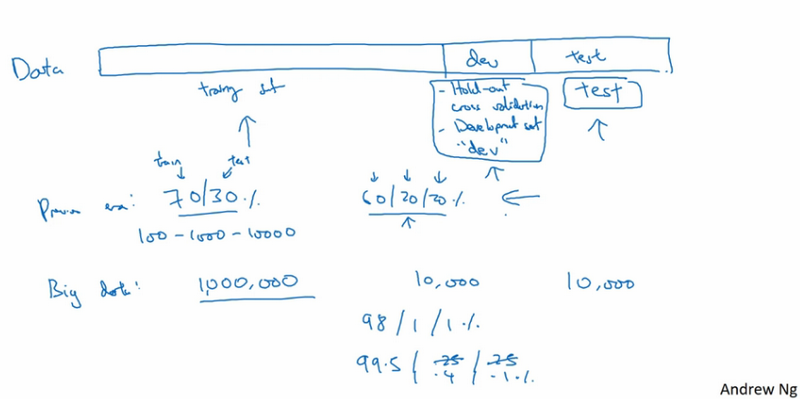 Data
dev
test
training set
- Hold-out
cross validation
- Development set
"dev"
test
train
test
Previous era:
70/30%
60/20/20%
100-1000-10000
Big data:
1,000,000
10,000
10,000
98/1/1%
99.5/
25
/
25
.4
.1%
Andrew Ng